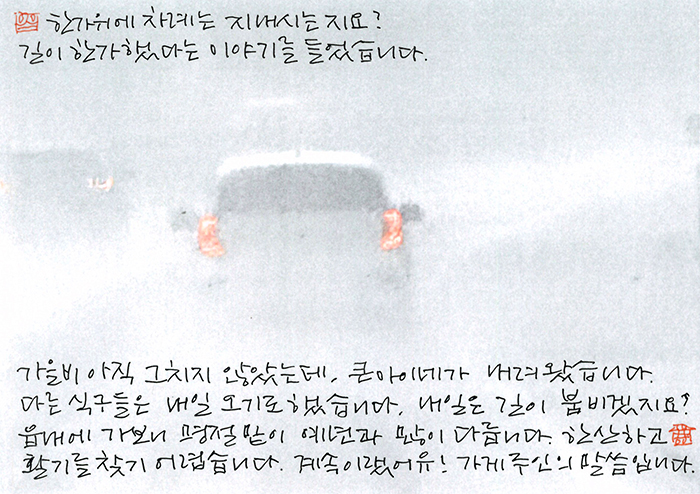 한가위에 차례는 지내시는지요?
길이 한가했다는 이야기를 들었습니다.
가을비 아직 그치지 않았는데, 큰아이네가 내려왔습니다.
다른 식구들은 내일 오기로 했습니다. 내일은 길이 붐비겠지요?
읍내에 가보니 명절밑이 예년과 많이 다릅니다. 한산하고
활기를 찾기 어렵습니다. 계속이랬어유! 가게주인의 말씀입니다.